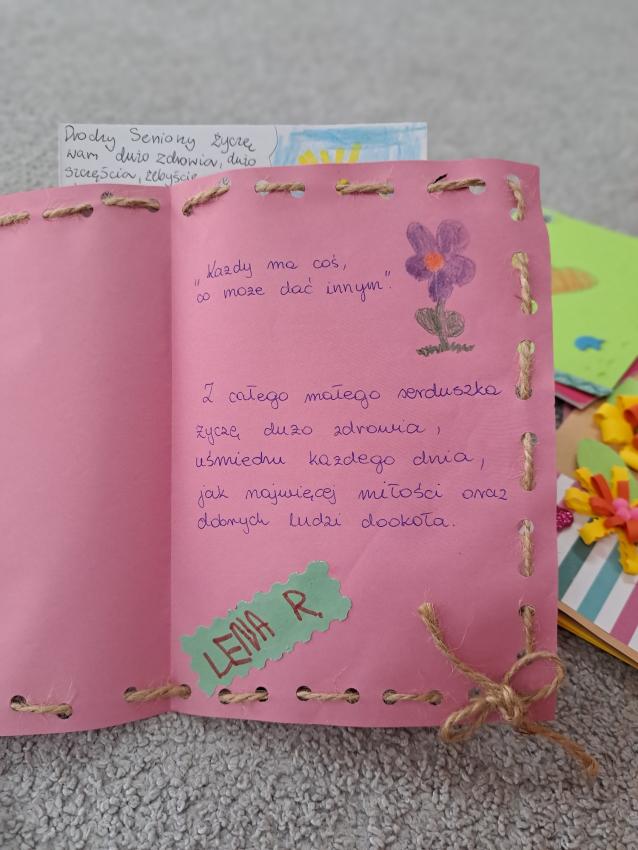 Drodzy Seniorzy życzę
wam dużo zdrowia, dużo
szczęścia, żebyście
"Każdy ma coś,
co może dać innym".
Z całego małego serduszka
życzę dużo zdrowia,
uśmiechu każdego dnia,
jak najwięcej miłości oraz
dobrych ludzi dookoła.
LENA R.